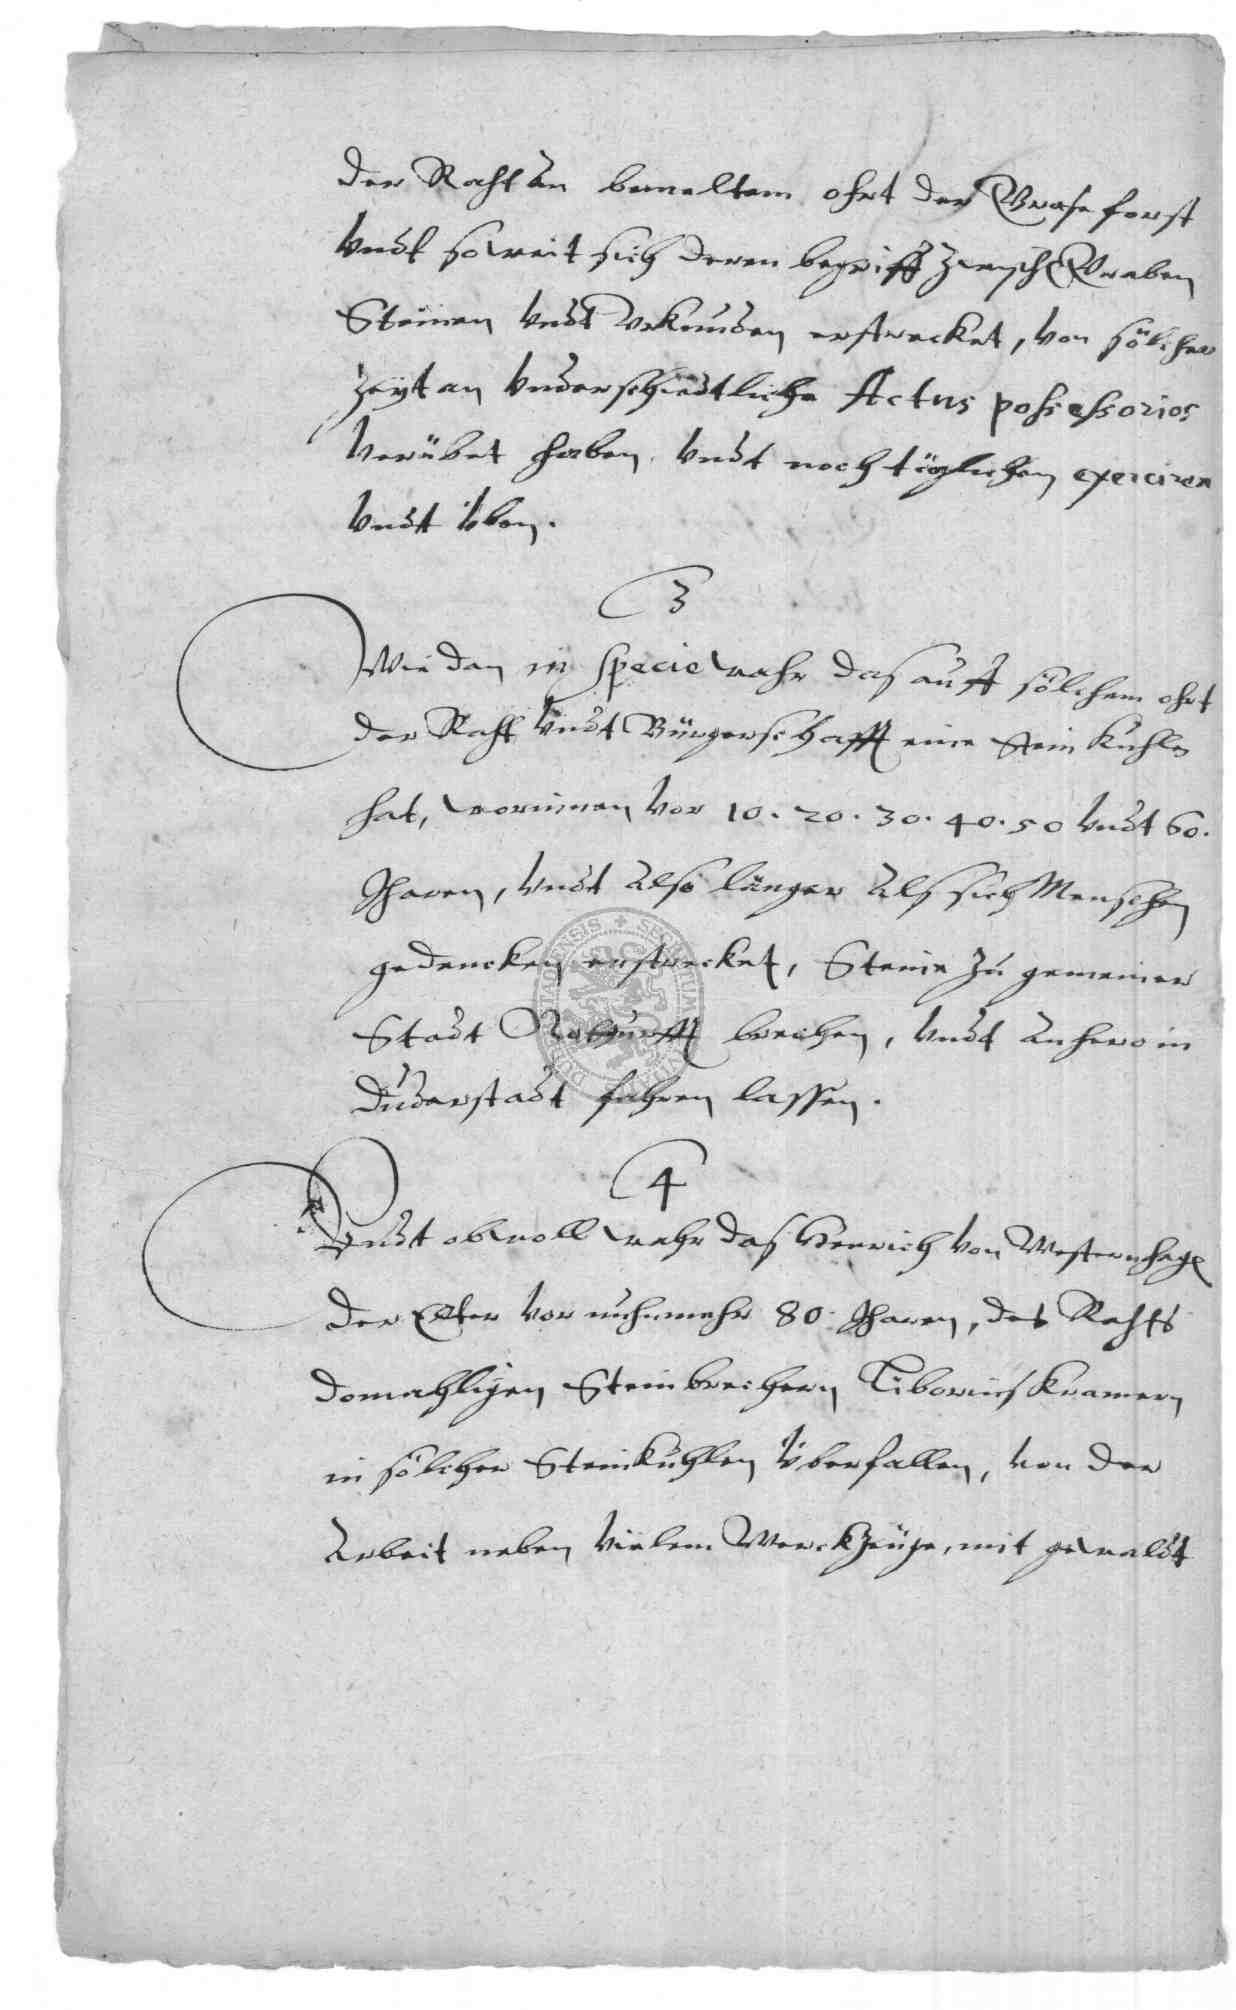 der Raht an bemeltem ohrt der Grafe forst
Vndt so weit sich deren begriff zwisch Graben
Steinen Vndt Vrkunden erstrecket, Von sölcher
Zeyt an Vnderschiedtliche Actus possessorios
Verübet haben Vndt noch täglichen exerciren
Vndt Vben.
3
Wie dan in specie wahr das auff sölchem ohrt
der Raht Vndt Bürgerschafft eine Stein Kuhle
hat, worinnen Vor 10. 20. 30. 40. 50 Vndt 60.
Jharen, Vndt Also länger Als sich Menschen
gedencken erstrecket, Steine zu gemeiner
Stadt Notturfft brechen, Vndt Anhero in
Duderstadt fahren lassen.
4
Vndt obwoll wahr das Henrich Von Westernhagen
der Elter Vor nuhnmehr 80. Jharen, des Rahts
domahligen Steinbrechern Liborius Kramern
in sölcher Steinkuhlen Vberfallen, Von der
Arbeit neben Vielem Werckzeuge, mit gewaldt
SECRETUM DUDERSTADENSIS